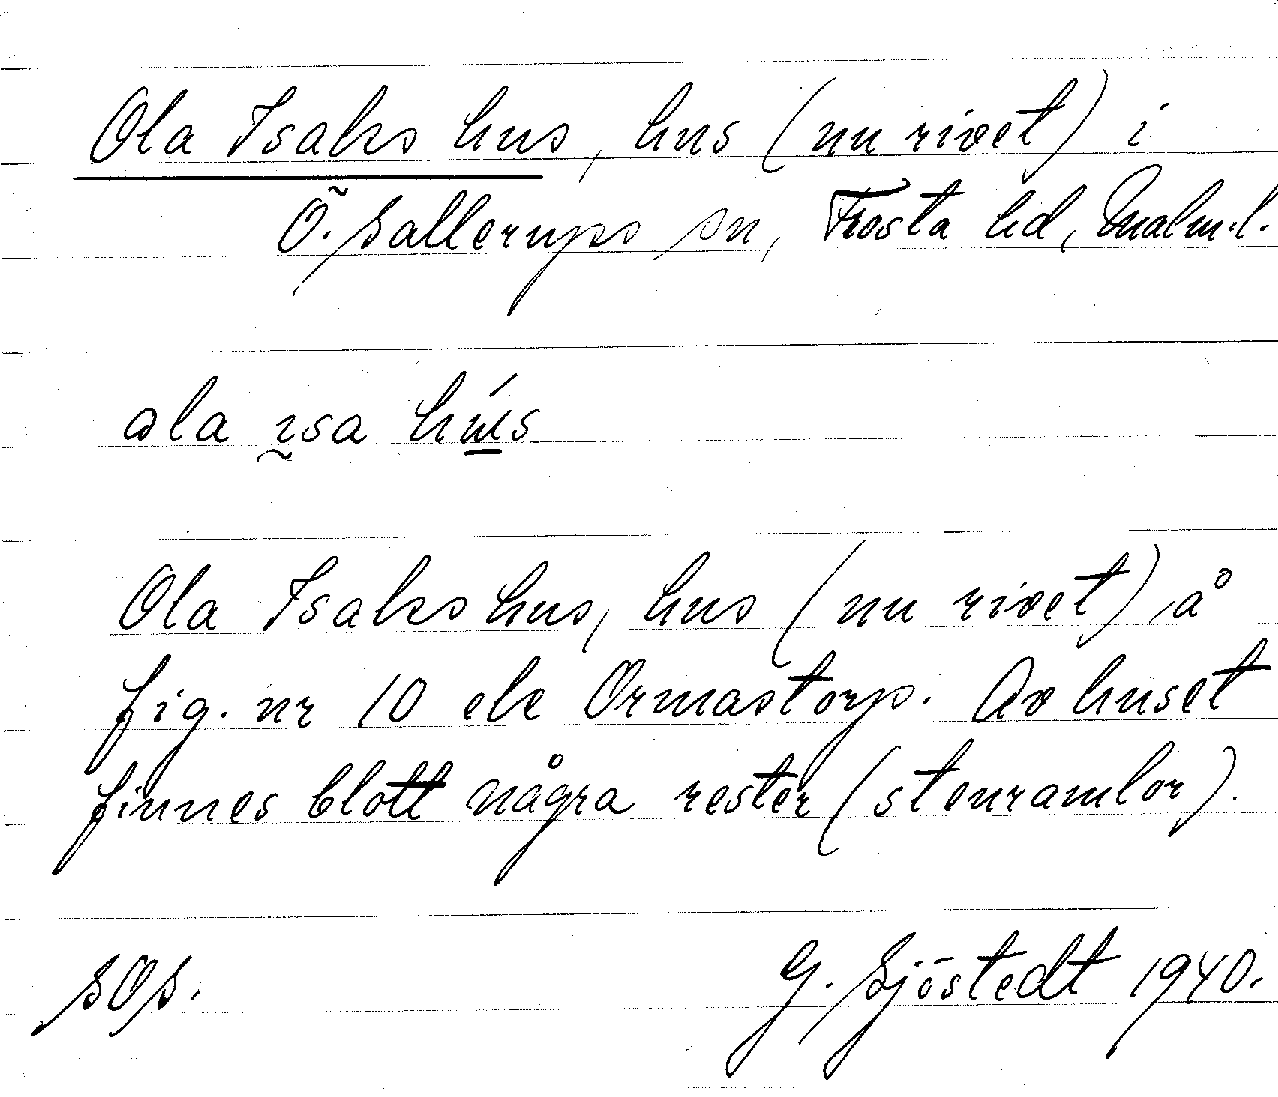 Ola Isaks hus, hus (nu rivet) i
Ö. Sallerups sn, Frosta hd, Malm.l.
ala isa hús
Ola Isaks hus, hus (nu rivet) å
fig. nr 10 ek Ormastorp. Av huset
finnes blott några rester (stenramlor).
SOS. G. Sjöstedt 1940.